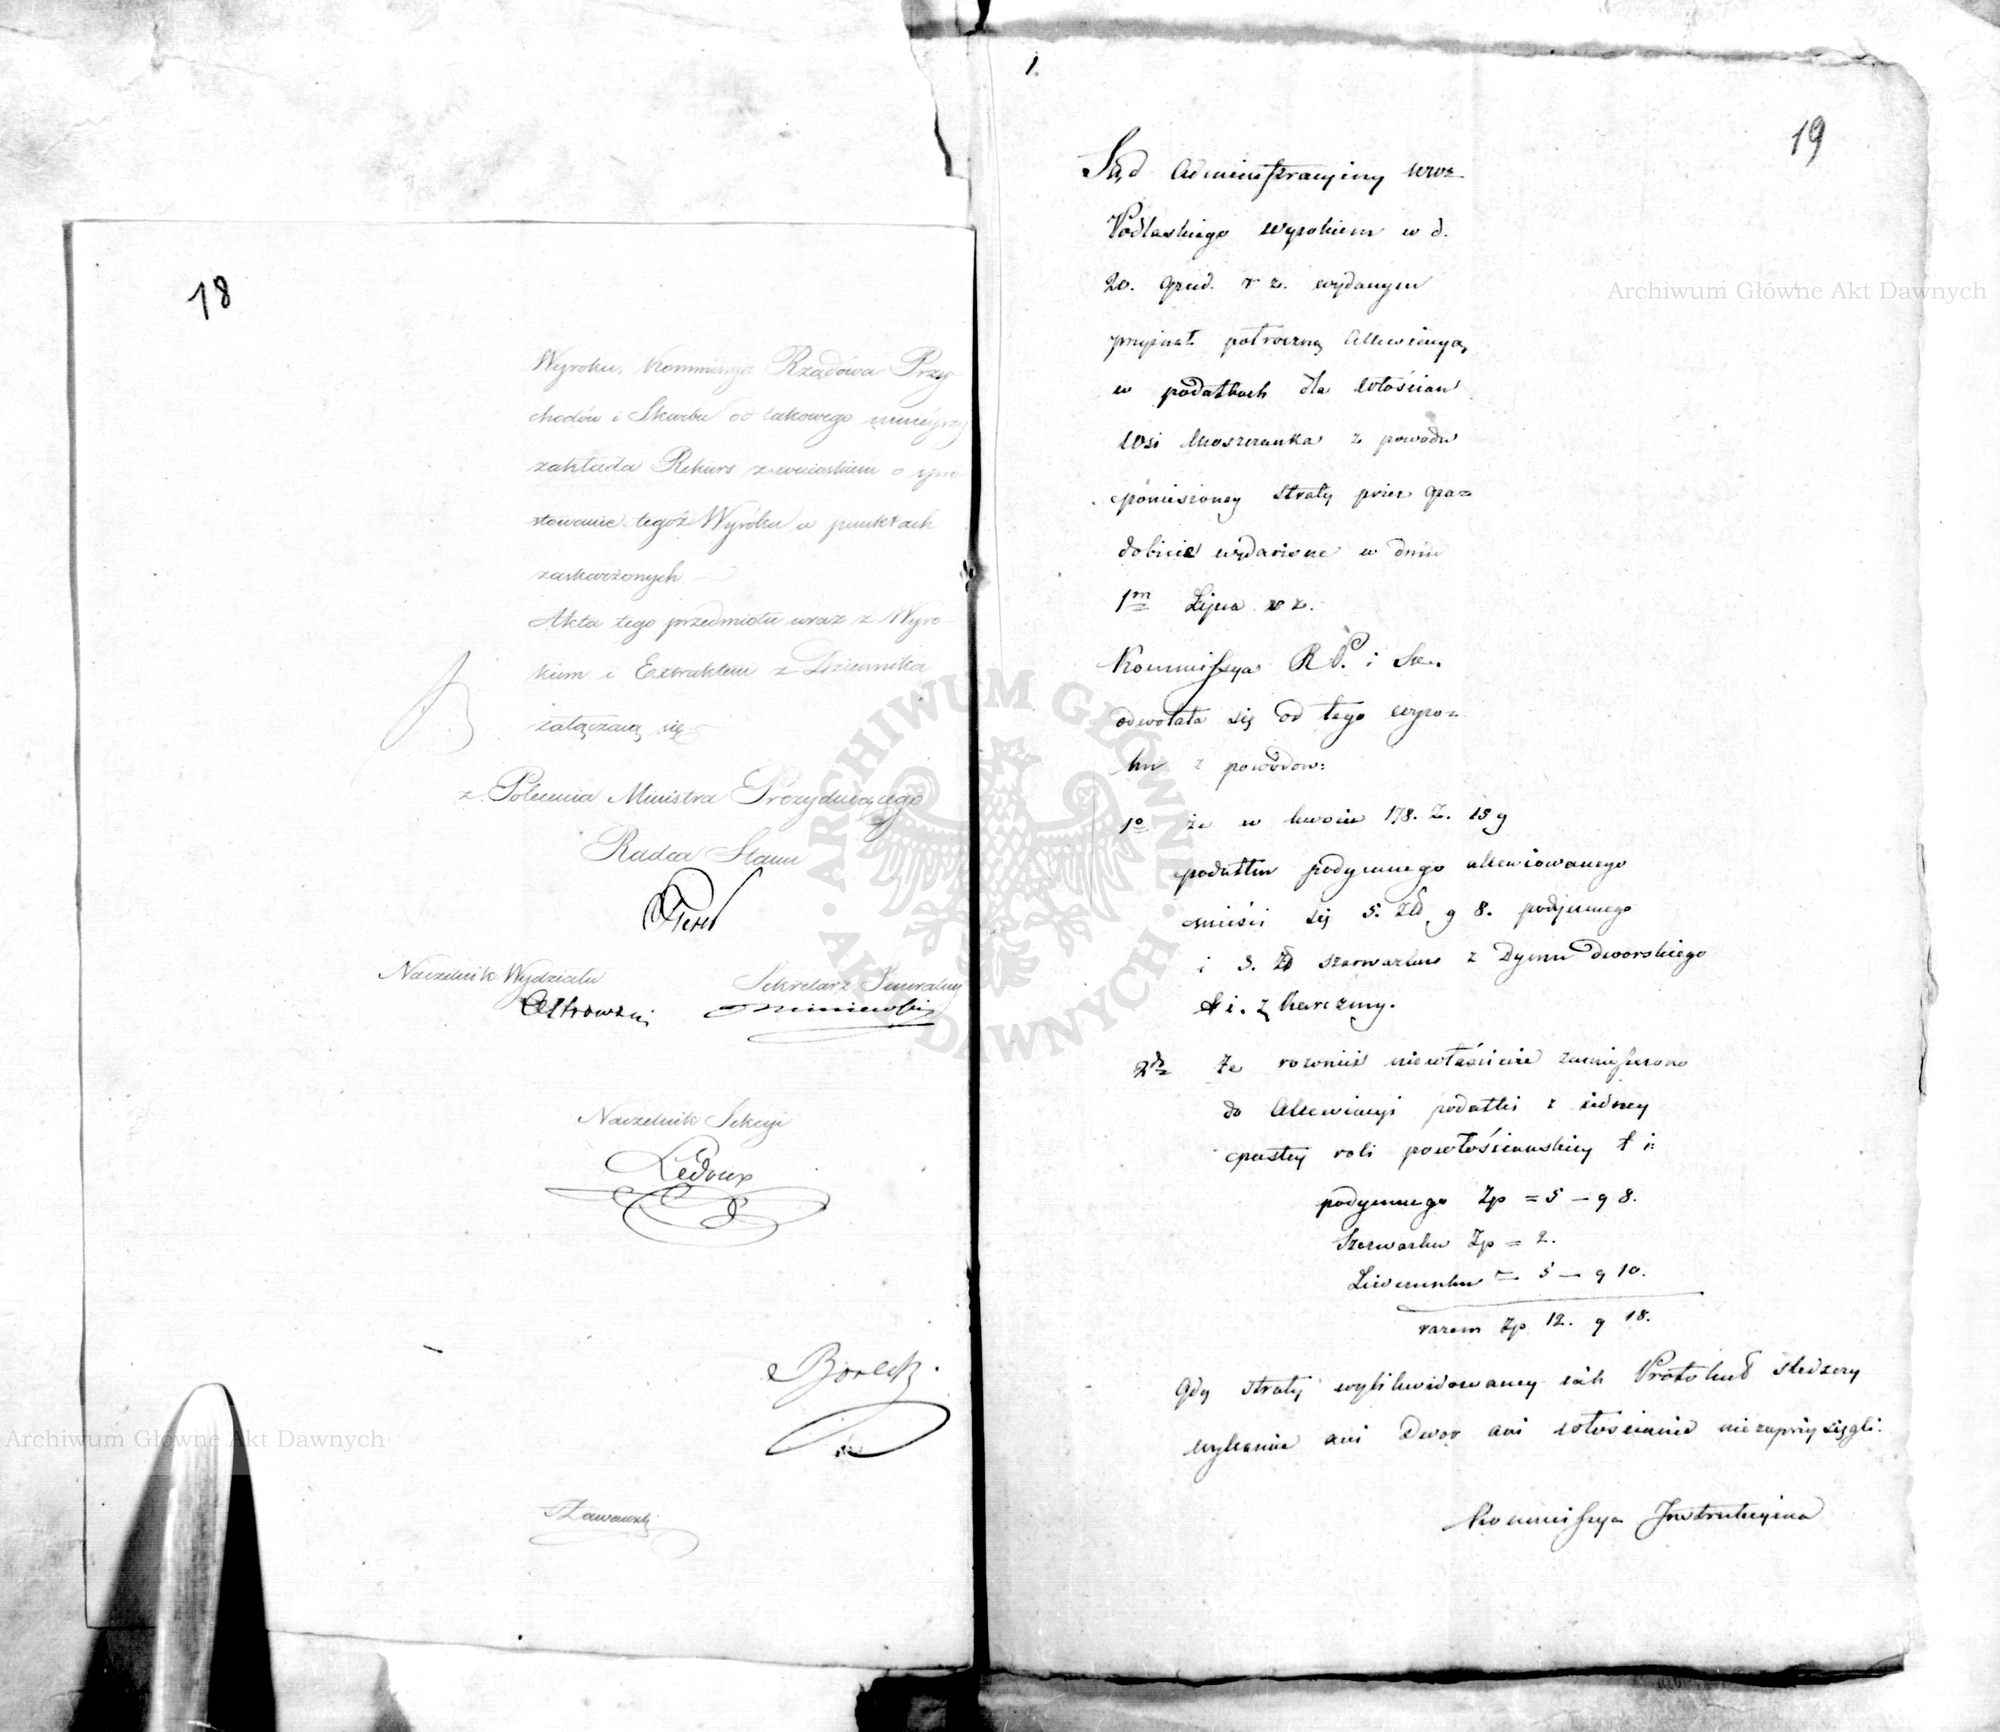 18
Wyroku, Kommissya Rządowa Przy
chodów i Skarbu od takowego ninieyszy
zakłada Rekurs z wnioskiem o spro
stowanie tegoż Wyroku w punktach
zaskarżonych
Akta tego przedmiotu wraz z Wyro
kiem i Extraktem z Dziennika
załączaią się
z Polecenia Ministra Prezyduiącego
Radca Stanu
Naczelnik Wydziału
Sekretarz Jeneralny
Ostrowski
Naczelnik Sekcyi
Ledoux
Zawadzki
1.
19
Sąd Administracyiny woz
Podlaskiego wyrokiem w d.
20. Grud. r z. wydanym
przyznał połroczną Allewiacyą
w podatkach dla włościan
wsi Moszczanka z powodu
poniesioney straty przez gra=
dobicie wydarzone w dniu
1m Lipca r z.
Kommissya R P. i Sk.
odwołała się od tego wyro=
ku z powodow:
1o że w kwocie 178. Z. 15 g
podatku podymnego allewiowanego
mieści się 5. Zł g 8. podymnego
i 3. Zł szarwarku z Dymu Dworskiego
t i. z Karczmy.
2do Że rownież niewłaściwie zamieszczono
do Allewiacyi podatki z iedney
pustey roli powłościańskiey t i:
podymnego Zp = 5 – g 8.
Szarwarku Zp = 2.
Liwerunku = 5 – g 10.
razem Zp 12. g 18.
Gdy straty wylikwidowaney iak Protokuł śledczy
wykazuie ani Dwor ani włościanie niezaprzysięgli.
Kommissya Instrukcyina
Archiwum Główne Akt Dawnych
Archiwum Główne Akt Dawnych
ARCHIWUM GŁÓWNE AKT DAWNYCH